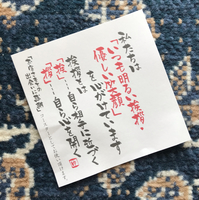 私たちは
「いつも明るい挨拶・
優しい笑顔」
を心がけています
挨拶とは
「挨」……自ら相手に近づく
「拶」……自ら心を開く